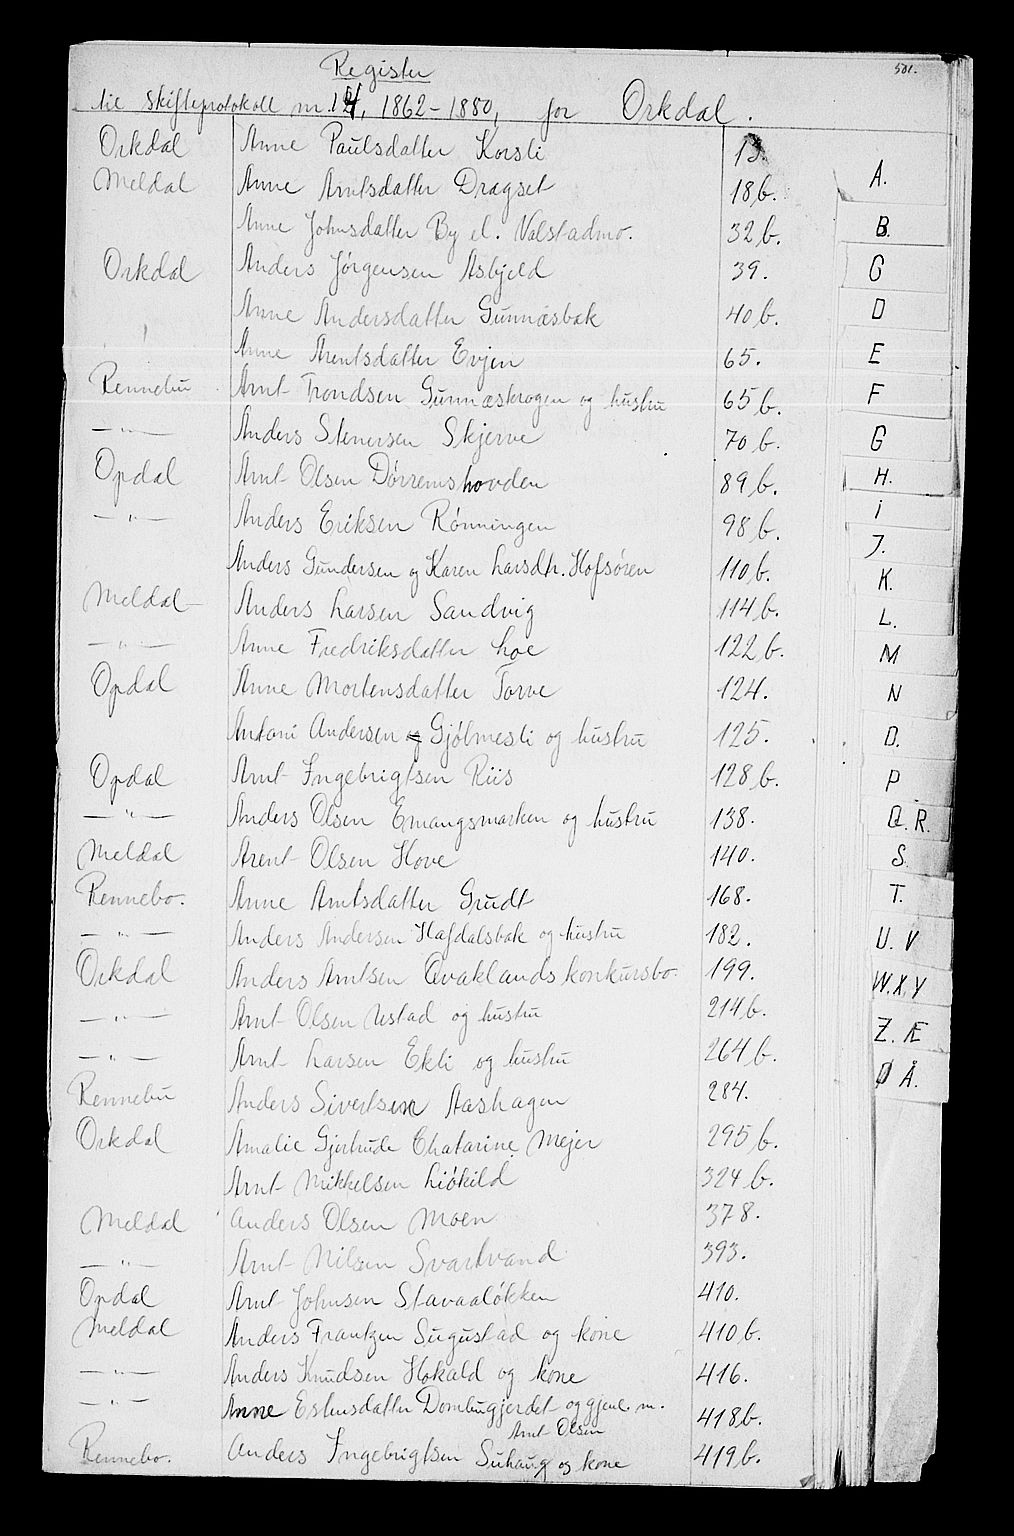 501.
Register
til skifteprotokoll nr. 14, 1862-1880, for Orkdal.
Orkdal Anne Paulsdatter Korsli 13.
Meldal Anne Arntsdatter Dragset 18b.
Anne Johnsdatter By el. Valstadmo. 32b.
Orkdal Anders Jørgensen Asbjeld 39.
Anne Andersdatter Gunnæsbak 40b.
Anne Arentsdatter Evjen 65.
Rennebu Arnt Trondsen Gunnæskrogen og hustru 65b.
—"— Anders Stenersen Skjerve 70b.
Opdal Arnt Olsen Dørremshovden 89b.
—"— Anders Eriksen Rønningen 98b.
Anders Gundersen og Karen Larsdtr. Hofsøren 110b.
Meldal Anders Larsen Sandvig 114b.
—"— Anne Fredriksdatter Loe 122b.
Opdal Anne Mortensdatter Torve 124.
Antoni Andersen Gjølmesli og hustru 125.
Opdal Arnt Ingebrigtsen Riis 128b.
—"— Anders Olsen Emangsmarken og hustru 138.
Meldal Arent Olsen Hove 140.
Rennebo. Anne Arntsdatter Grudt 168.
—"— Anders Andersen Hafdalsbak og hustru 182.
Orkdal Anders Arntsen Qvaklands konkursbo. 199.
—"— Arnt Olsen Ustad og hustru 214b.
—"— Arnt Larsen Ekli og hustru 264b.
Rennebu Anders Sivertsen Aashagen 284.
Orkdal Amalie Gjertrude Chatarine Mejer 295b.
Arnt Mikkelsen Liøkild 324b.
Meldal Anders Olsen Moen 378.
—"— Arnt Nilsen Svartvand 393.
Opdal Arnt Johnsen Stavaaløkken 410.
Meldal Anders Frantzen Sugustad og kone 410b.
—"— Anders Knudsen Hokald og kone 416.
—"— Anne Estensdatter Dombugjerdet og gjenl. m. 418b.
Arnt Olsen
Rennebo. Anders Ingebrigtsen Suhaug og kone 419b.
A.
B.
C
D
E
F
G
H.
I
J.
K.
L.
M
N
O.
P
Q. R.
S.
T.
U. V
W.X.Y
Z. Æ
Ø Å.